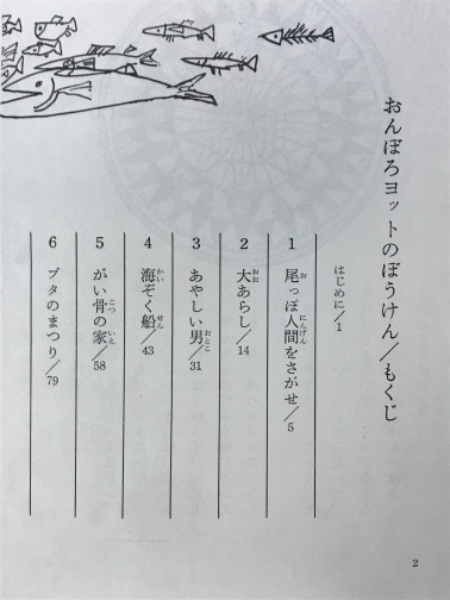 おんぼろヨットのぼうけん／もくじ
はじめに／1
1 尾っぽ人間をさがせ／5
2 大あらし／14
3 あやしい男／31
4 海ぞく船／43
5 がい骨の家／58
6 ブタのまつり／79
2